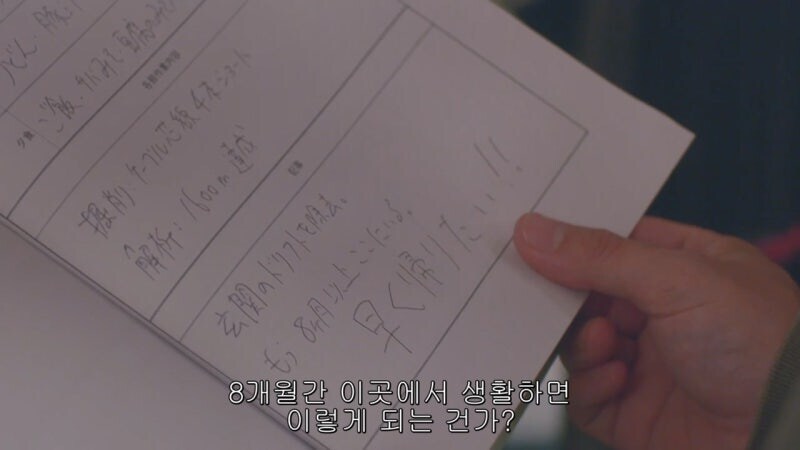 夕食
ご飯、
各自作業内容
掘削：ケーブル芯線4本ショート
解析：1600m達成
記事
玄関のドリフトを除去。
もう8ヶ月以上ここにいる。
早く帰りたい!!
8개월간 이곳에서 생활하면
이렇게 되는 건가?